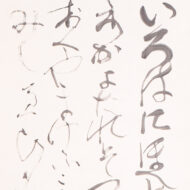 いろはにほへ
わかよたれそつ
おくやまけふこ
みしゑひも